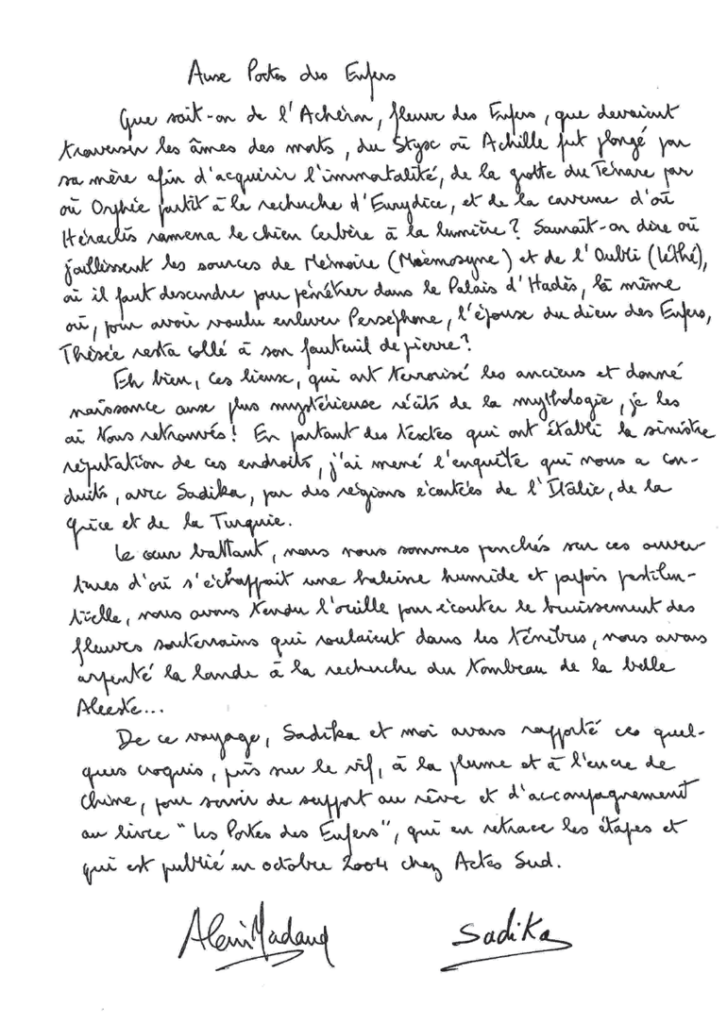 Aux Portes des Enfers
Que sait-on de l'Achéron, fleuve des Enfers, que devaient
traverser les âmes des morts, du Styx où Achille fut plongé par
sa mère afin d'acquérir l'immortalité, de la grotte du Ténare par
où Orphée partit à la recherche d'Eurydice, et de la caverne d'où
Héraclès ramena le chien Cerbère à la lumière ? Saurait-on dire où
jaillissent les sources de Mémoire (Mnémosyne) et de l'Oubli (Léthé),
où il faut descendre pour pénétrer dans le Palais d'Hadès, là même
où, pour avoir voulu enlever Perséphone, l'épouse du dieu des Enfers,
Thésée resta collé à son fauteuil de pierre ?
Eh bien, ces lieux, qui ont terrorisé les anciens et donné
naissance aux plus mystérieux récits de la mythologie, je les
ai tous retrouvés ! En partant des textes qui ont établi la sinistre
réputation de ces endroits, j'ai mené l'enquête qui nous a con-
duits, avec Sadika, par des régions écartées de l'Italie, de la
Grèce et de la Turquie.
Le cœur battant, nous nous sommes penchés sur ces ouver-
tures d'où s'échappait une haleine humide et parfois pestilen-
tielle, nous avons tendu l'oreille pour écouter le bruissement des
fleuves souterrains qui roulaient dans les ténèbres, nous avons
arpenté la lande à la recherche du tombeau de la belle
Alceste...
De ce voyage, Sadika et moi avons rapporté ces quel-
ques croquis, pris sur le vif, à la plume et à l'encre de
Chine, pour servir de support au rêve et d'accompagnement
au livre "Les Portes des Enfers", qui en retrace les étapes et
qui est publié en octobre 2004 chez Actes Sud.
Alain Nadaud
Sadika